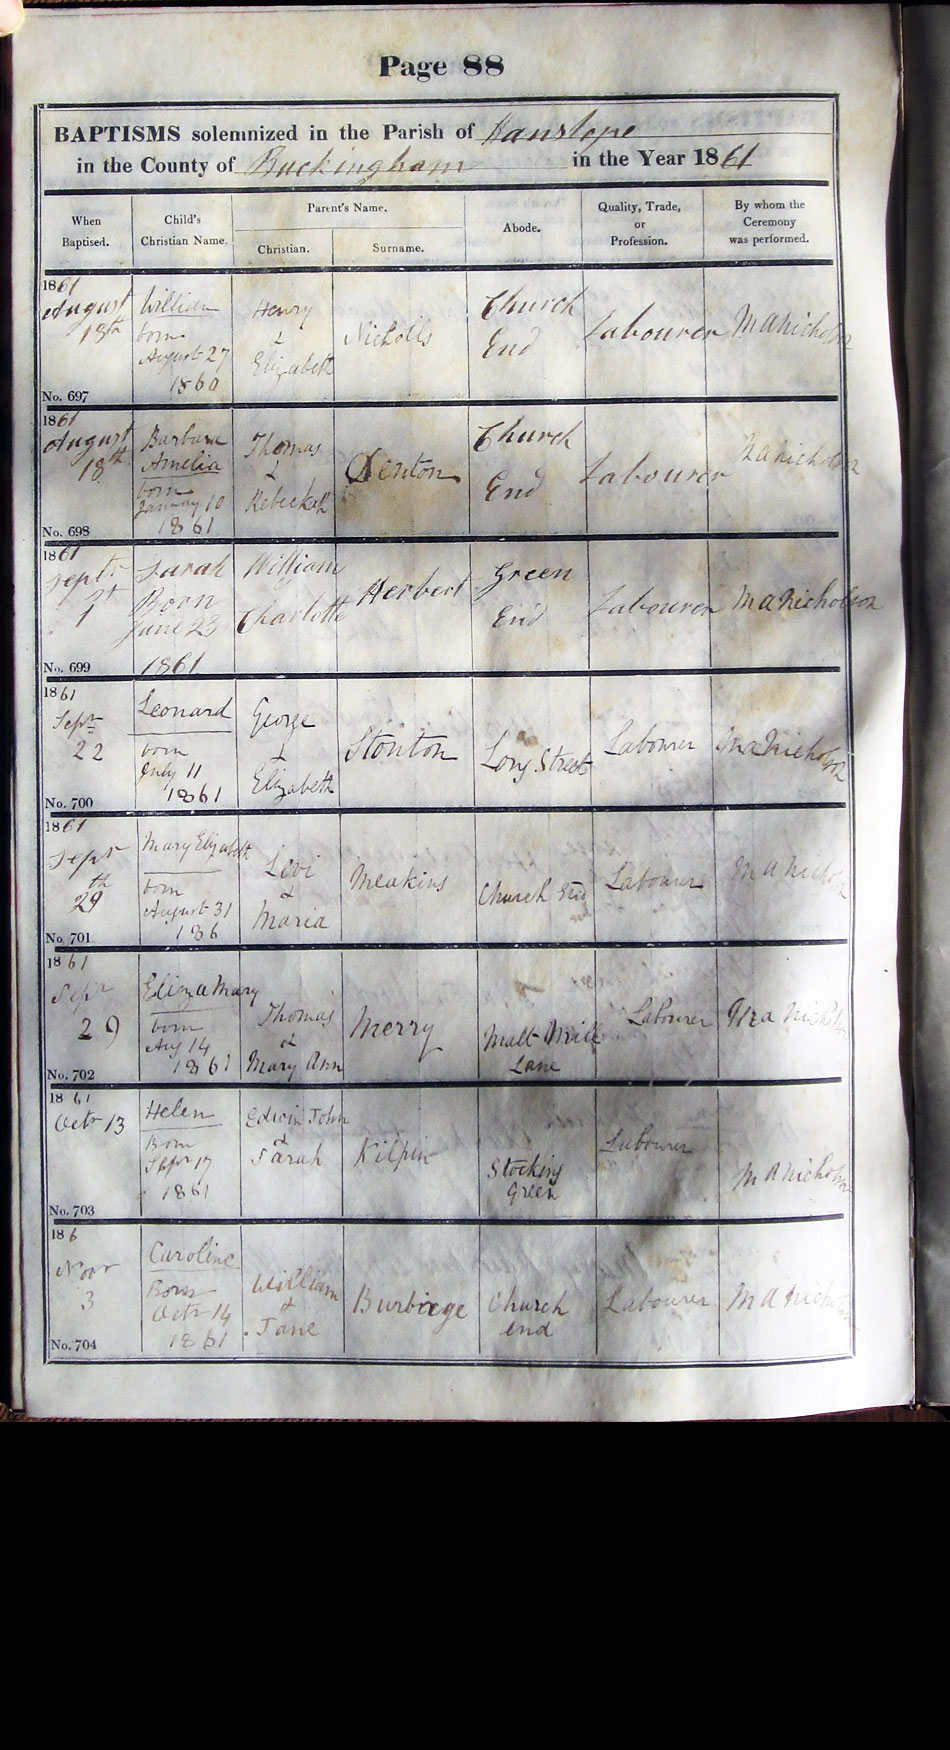 Page 88
BAPTISMS solemnized in the Parish of Hanslope
in the County of Buckingham in the Year 1861
When Baptised.
Child's Christian Name.
Parent's Name.
Christian.
Surname.
Abode.
Quality, Trade, or Profession.
By whom the Ceremony was performed.
1861
August
18th
No. 697
William
born
August 27
1860
Henry
&
Elizabeth
Nicholls
Church
End
Labourer
M A Nicholson
1861
August
18th
No. 698
Barbara
Amelia
born
January 10
1861
Thomas
&
Rebeckah
Denton
Church
End
Labourer
M A Nicholson
1861
Septr
1st
No. 699
Sarah
Born
June 23
1861
William
Charlotte
Herbert
Green
End
Labourer
M A Nicholson
1861
Septr
22
No. 700
Leonard
born
July 11
1861
George
&
Elizabeth
Stonton
Long Street
Labourer
M A Nicholson
1861
Septr
29th
No. 701
Mary Elizabeth
born
August 31
186
Levi
&
Maria
Meakins
Church End
Labourer
M A Nicholson
1861
Septr
29
No. 702
Eliza Mary
born
Aug 14
1861
Thomas
&
Mary Ann
Merry
Malt Mill
Lane
Labourer
M A Nicholson
1861
Octr 13
No. 703
Helen
Born
Septr 17
1861
Edwin John
&
Sarah
Kilpin
Stocking
Green
Labourer
M A Nicholson
186
Novr
3
No. 704
Caroline
Born
Octr 14
1861
William
&
Jane
Burbidge
Church
end
Labourer
M A Nicholson